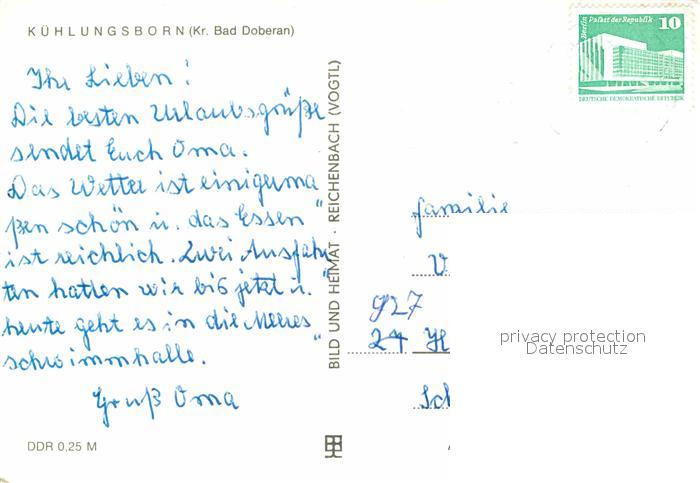 KÜHLUNGSBORN (Kr. Bad Doberan)
Ihr Lieben!
Die besten Urlaubsgrüße
sendet Euch Oma.
Das Wetter ist einigerma
ßen schön u. das Essen
ist reichlich. Zwei Ausfahr
ten hatten wir bis jetzt u.
heute geht es in die Meeres
schwimmhalle.
Gruß Oma
DDR 0,25 M
BILD UND HEIMAT · REICHENBACH (VOGTL)
Berlin Palast der Republik 10
DEUTSCHE DEMOKRATISCHE REPUBLIK
Familie
V
927
24 H
Sch
privacy protection
Datenschutz